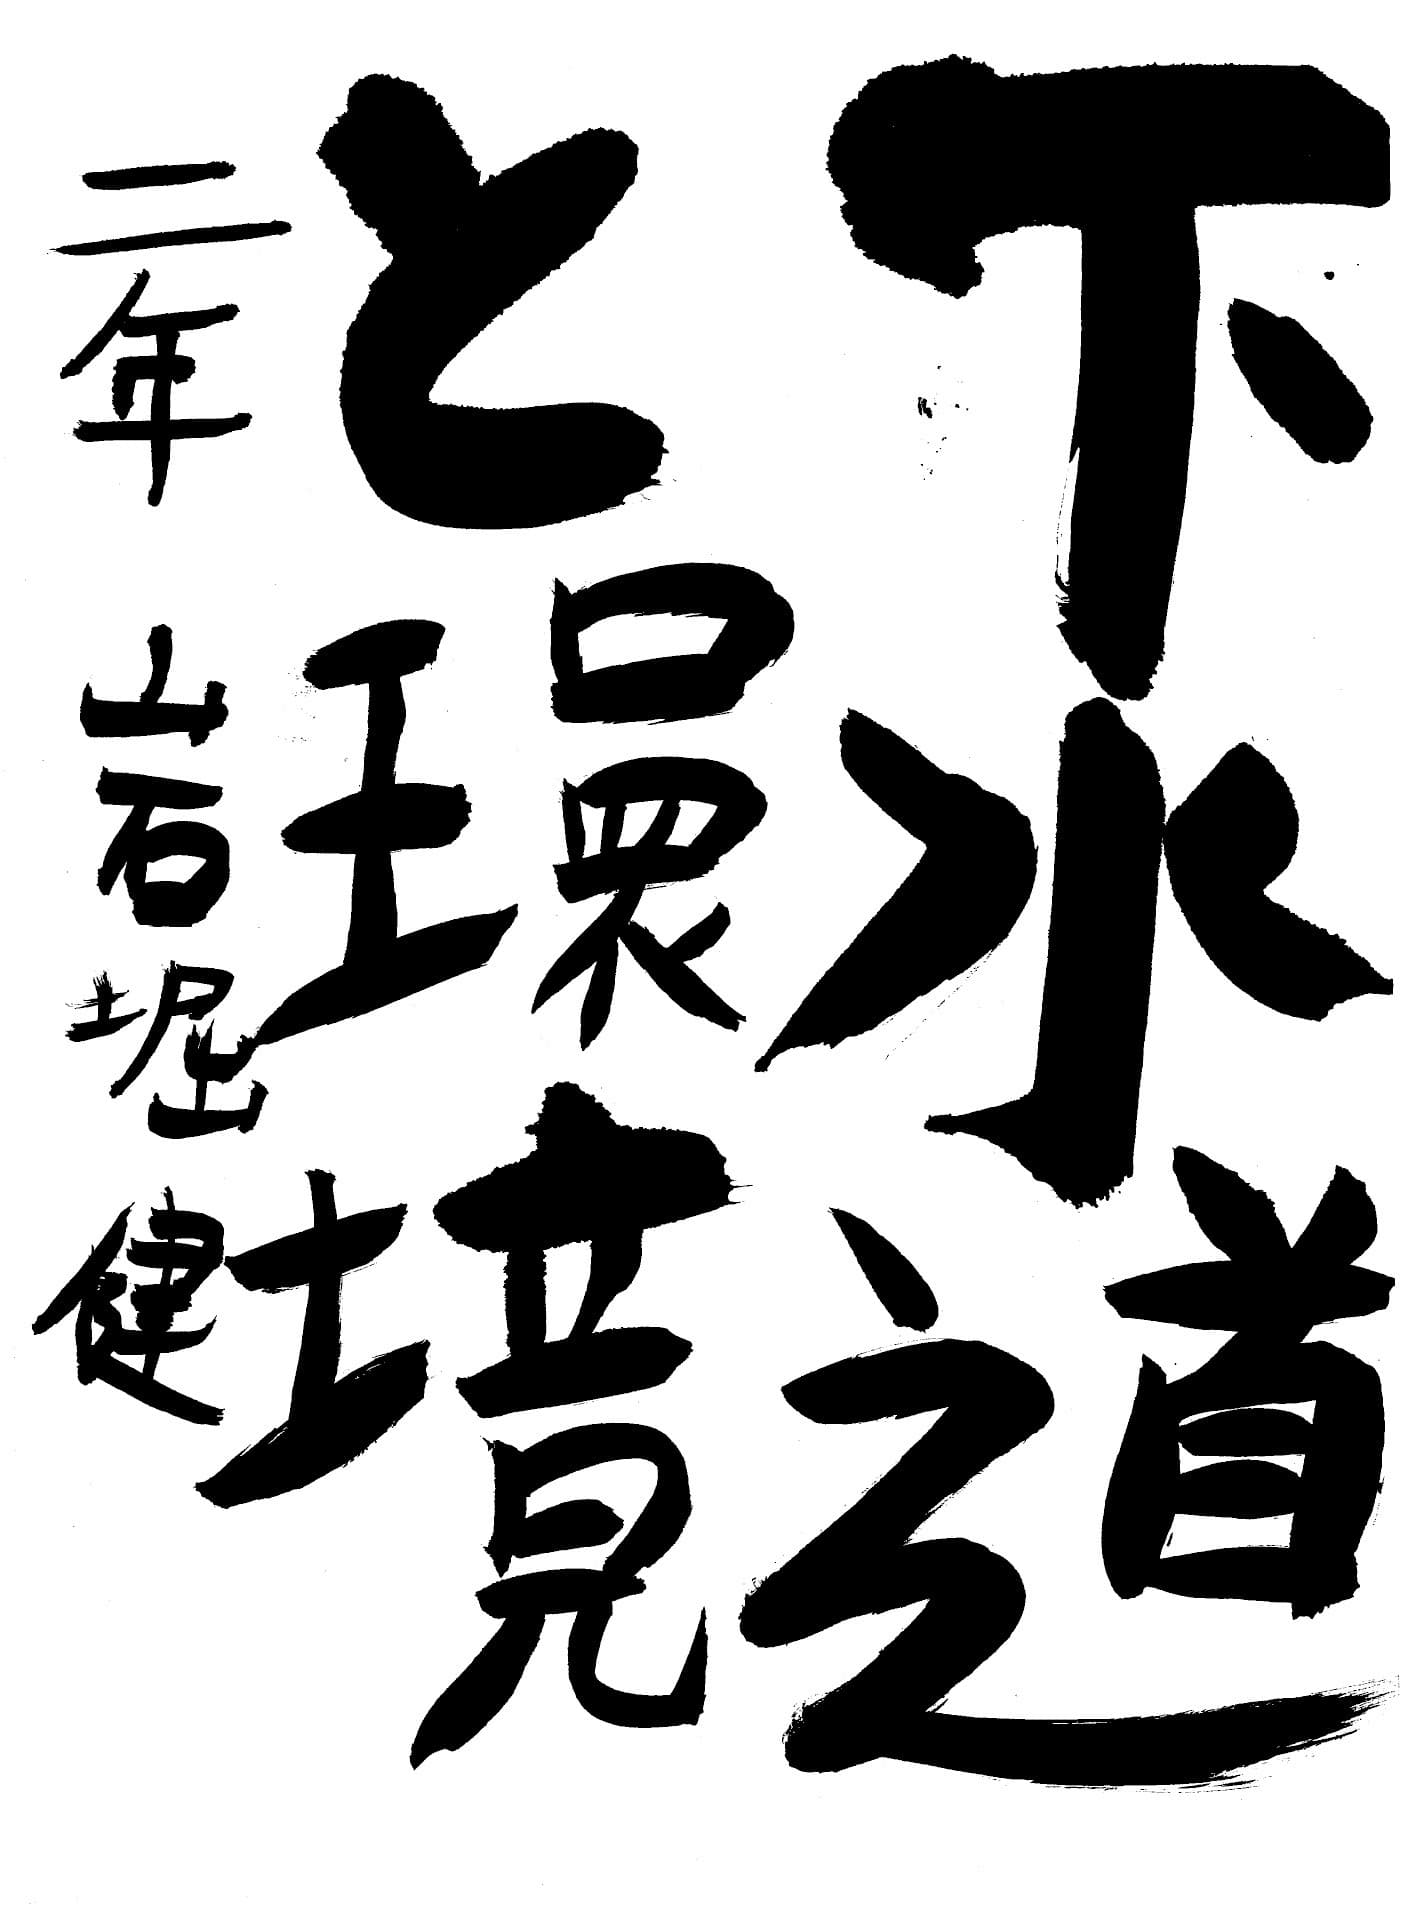 下水道
と環境
二年 岩堀健